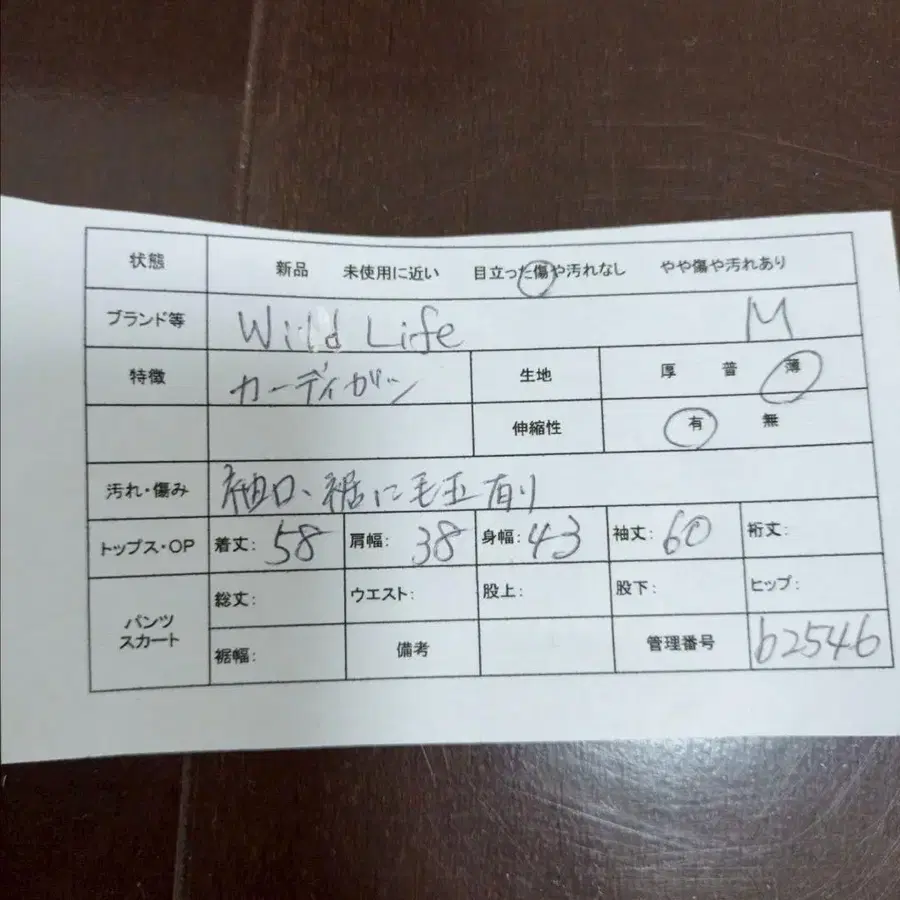 状態 新品 未使用に近い 目立った傷や汚れなし やや傷や汚れあり
ブランド等 Wild Life M
特徴 カーディガン 生地 厚 普 薄
伸縮性 有 無
汚れ・傷み 袖口、裾に毛玉有り
トップス・OP 着丈: 58 肩幅: 38 身幅: 43 袖丈: 60 裄丈:
パンツ スカート 総丈: ウエスト: 股上: 股下: ヒップ:
裾幅: 備考 管理番号 62546